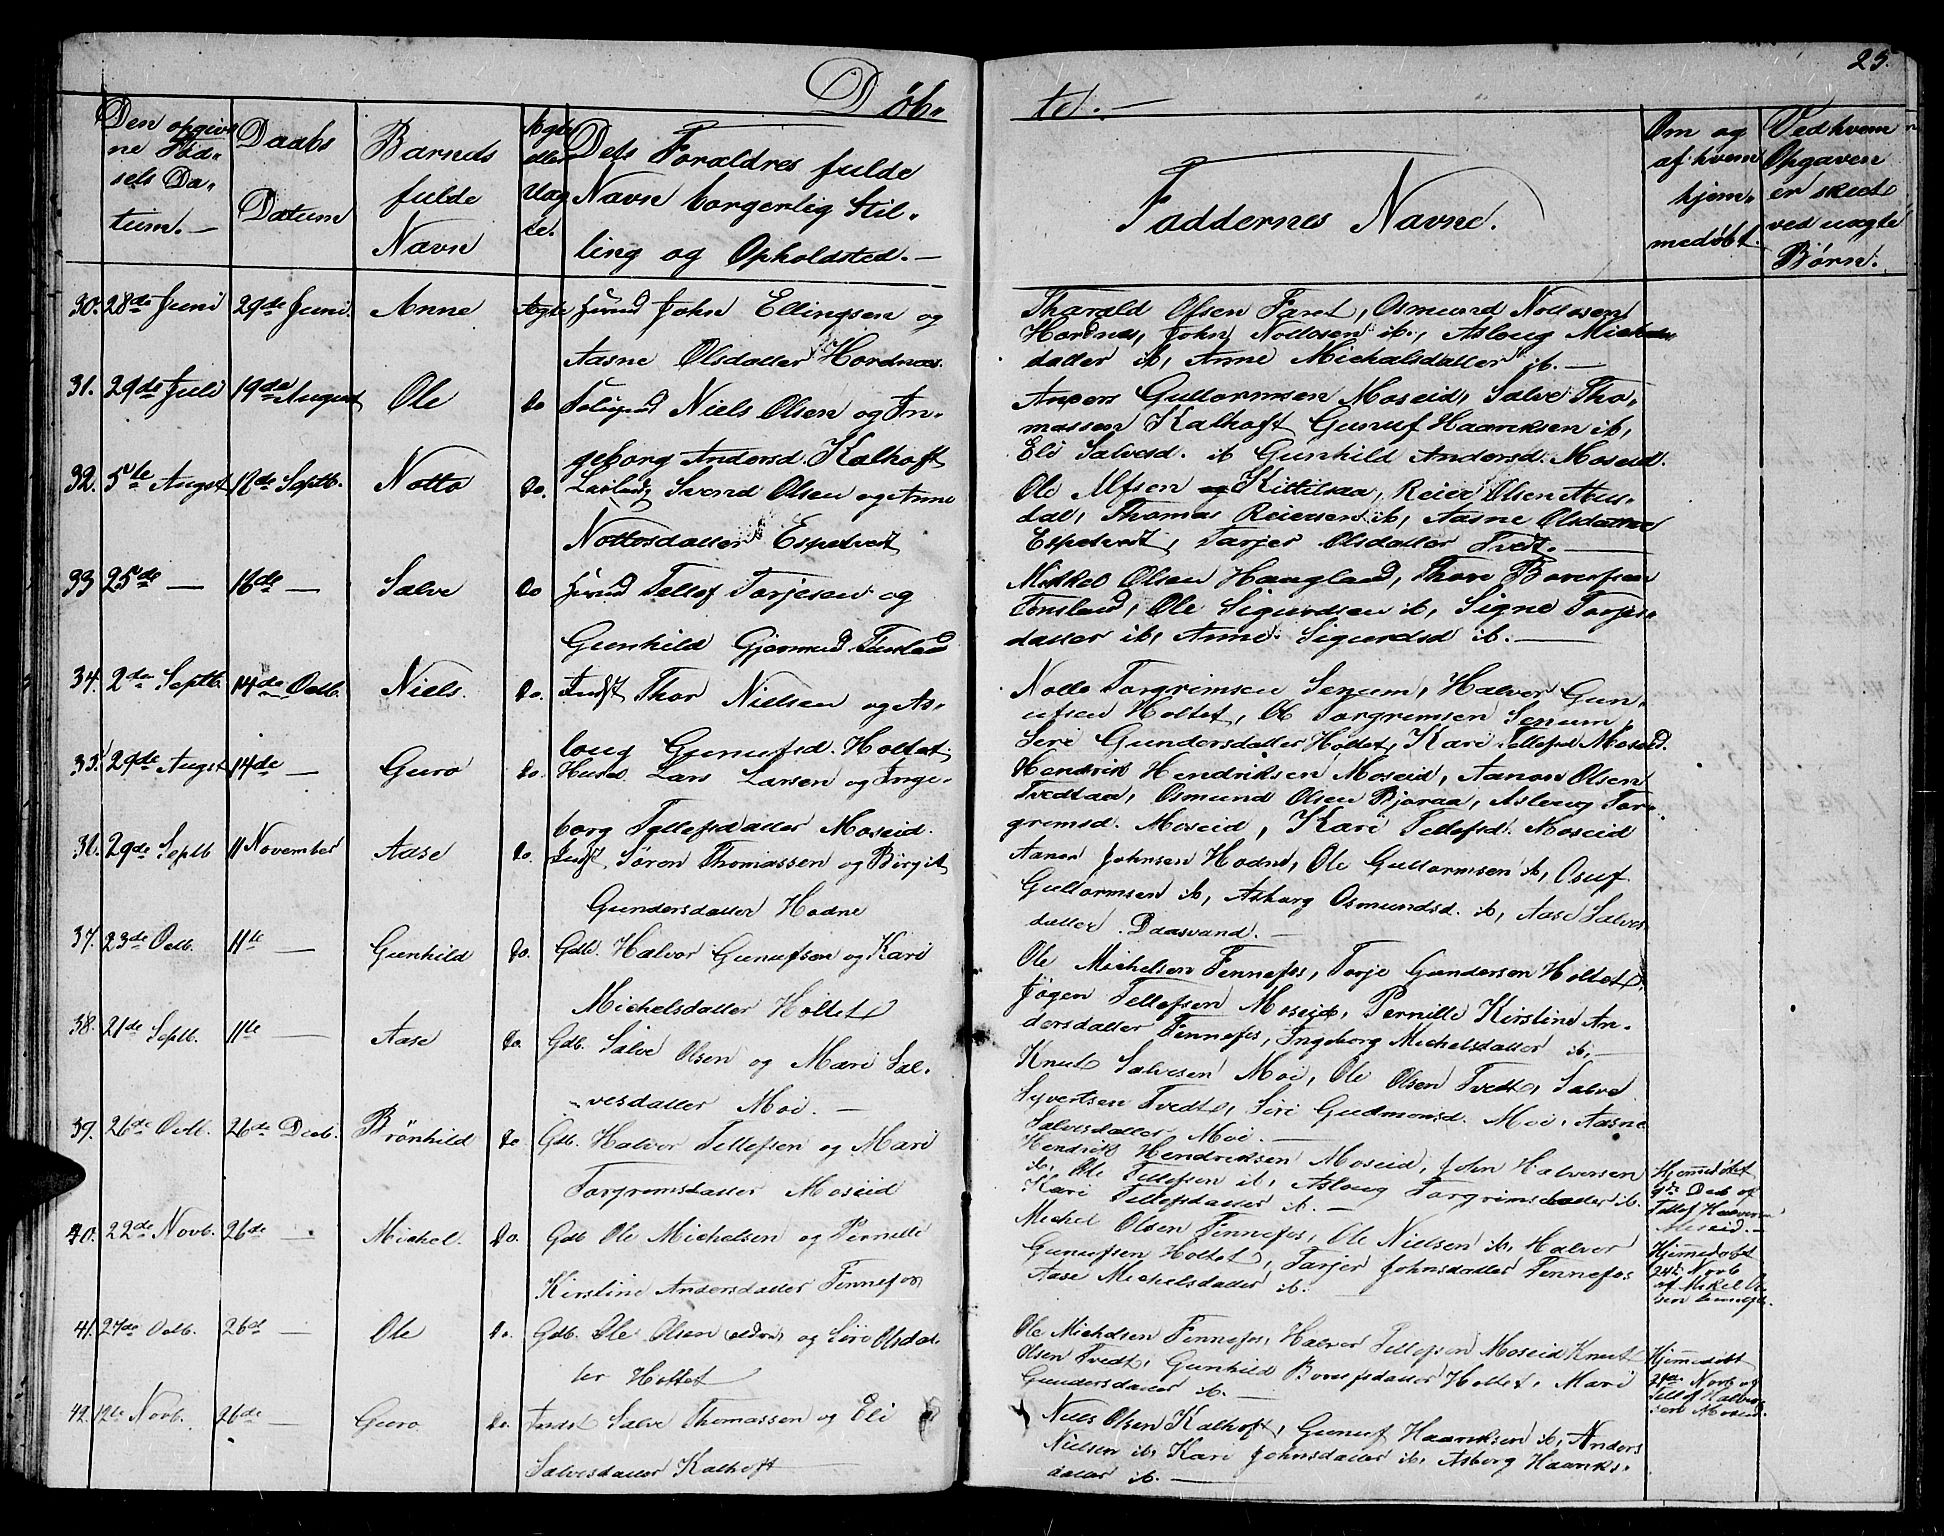 25.
Døb-
te.
Den opgiv-
ne Fød-
sels Da-
tum.
Daabs
Datum
Barnets
fulde
Navn
Ægte
eller
Uæg
te.
Dets Forældres fulde
Navn borgerlig Stil-
ling og Opholdsted.
Faddernes Navne.
Om og
af hvem
hjem-
medøbt.
Ved hvem
Opgaven
er skeet
ved uægte
Børn.
30. 28de Juni 29de Juni. Anne Ægte John Ellingsen og
Aasne Olsdatter Hordnæs.
Tharald Olsen Faret, Osmund Nottosen
Hordnes, John Nottosen ib., Aslaug Michels
datter ib, Anne Michalsdatter ib.
31. 29de Juli 19de August Ole do Niels Olsen og In-
geborg Andersd. Kalhoft
Anders Guttormsen Moseid, Salve Tho-
massen Kalhoft Gunuf Haavelsen ib,
Eli Salvesd. ib Gunhild Andersd. Moseid.
32. 5te Augst 12de Septb. Notto do. Svend Olsen og Anne
Nottosdatter Espetvedt
Ole Alfsen Kittilsaa, Reier Olsen Aus-
dal, Thomas Reiersen ib, Aasne Olsdatter
Espetvedt, Tarjer Olsdatter Tvedt.
33 25de — 16de — Salve do Tellef Torjesen og
Gunhild Gjermund
Mikkel Olsen Haugland, Thore
Ole Sigurdsen ib, Signe Torjes-
datter ib, Anne Sigurdsd ib.
34. 2den Septb. 14de Octb. Niels. do. Indst Thor Nielsen og As-
loug Gunufsd. Holtet
Notto Torgrimsen Senum, Halvor Gun-
ufsen Holtet, Ole Torgrimsen Senum,
Siri Gundersdatter Holtet, Kari Tellefsd Moseid.
35. 29de Augst 14de — Guro do. Lars Larsen og Inge-
borg Tellefsdatter Moseid.
Hendrik Hendriksen Moseid, Aanon Olsen
Tvedtaa, Osmund Olsen Bjoraa, Asloug Tor-
grimsd. Moseid, Kari Tellefsd. Moseid
36. 29de Septb 11 November Aase do. Indst Søren Thomassen og Birgit
Gundersdatter Hodne
Aanon Johnsen Hodne, Ole Guttormsen ib, Osuf
Guttormsen ib, Asborg Osmundsd. ib, Aase Salves
datter Daasvand.
37. 23de Octb. 11te — Gunhild do. Gdb. Halvor Gunufsen og Kari
Michelsdatter Holtet
Ole Michelsen Fennefos, Torje Gundersen Holtet,
Jøgen Tellefsen Moseid, Pernille Kirstine An-
dersdatter Fennefos, Ingeborg Michelsdatter ib.
38. 21de Septb. 11te — Aase do. Gdb. Salve Olsen og Mari Sal-
vesdatter Moi.
Knut Salvesen Moi, Ole Olsen Tvedt, Salve
Syvertsen Tvedt, Siri Gudmonsd. Moi, Aasne
Salvesdatter Moi.
39. 26de Octb. 26de Decb. Brønhild do Gdb. Halvor Tellefsen og Mari
Torgrimsdatter Moseid
Hendrik Hendriksen Moseid, John Halversen
ib, Ole Tellefsen ib, Asloug Torgrimsdatter ib.
Kari Tellefsdatter ib.
Hjemmedøbt
9de Decb af
Tellef Halversen
Moseid.
40. 22de Novb. 26de — Michel. do. Gdb Ole Michelsen og Pernille
Kirstine Andersdatter Fennefos
Michel Olsen Fennefos, Ole Nielsen ib, Halvor
Gunufsen Holtet, Tarjer Johnsdatter Fennefos
Aase Michelsdatter ib.
Hjemmedøbt
24de Novb
af Mikel Ol-
sen Fennefos.
41. 27de Octb. 26de — Ole do. Gdb. Ole Olsen (eldre) og Siri Olsdat-
ter Holtet
Ole Michelsen Fennefos, Halvor Tellefsen Moseid Knut
Olsen Tvedt, Gunhild Bovufsdatter Holtet, Mari
Gundersdatter ib.
Hjemmedøbt
Novb og
Tellef Halvor
sen Moseid.
42. 12te Novb. 26de — Guro do. Indst Salve Thomassen og Eli
Salvesdatter Kalhoft
Niels Olsen Kalhoft, Gunuf Haavelsen ib, Anders
Nielsen ib, Kari Johnsdatter ib, Asborg Haavels-
datter ib.